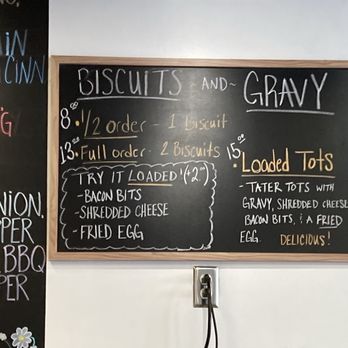 AIN
CINN
G
NION,
PPER
BBQ
PER
BISCUITS -AND- GRAVY
8.00 • 1/2 order - 1 Biscuit
13.00 • Full order - 2 Biscuits
TRY IT LOADED! (+2.00)
- BACON BITS
- SHREDDED CHEESE
- FRIED EGG
15.00
• Loaded Tots
- TATER TOTS WITH
GRAVY, SHREDDED CHEESE
BACON BITS, & A FRIED
EGG. DELICIOUS!